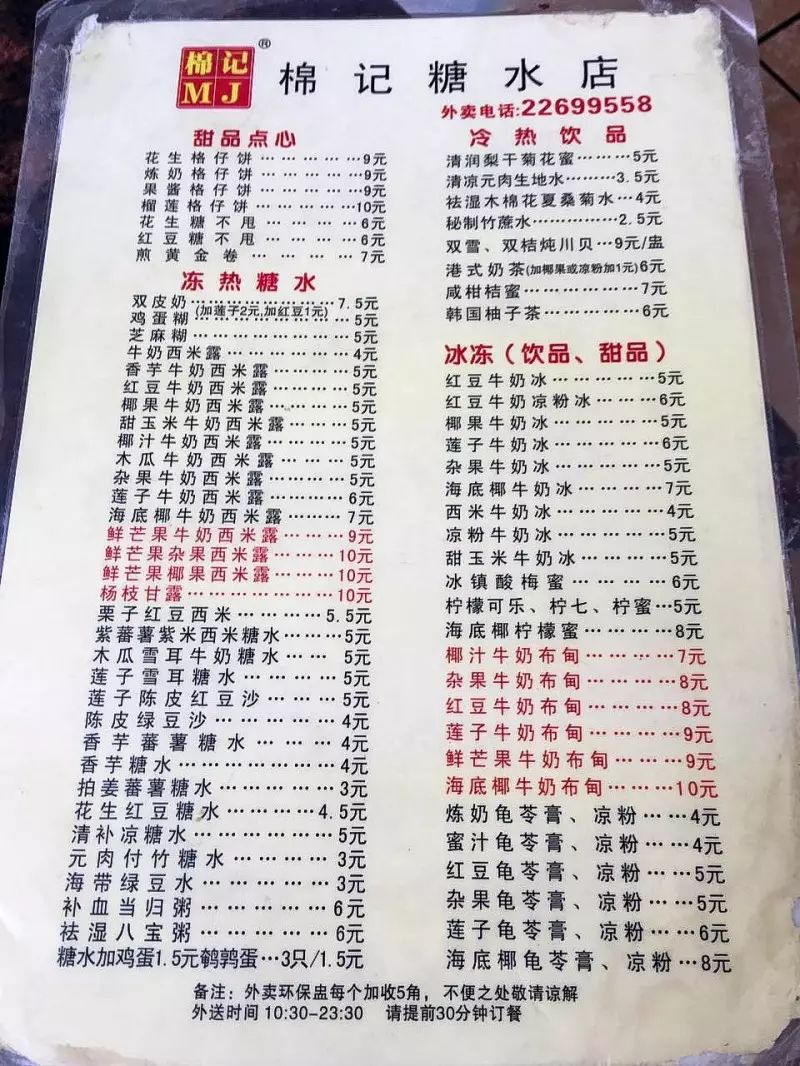 棉记
MJ
®
棉记糖水店
外卖电话:22699558
甜品点心
花生格仔饼………………9元
炼奶格仔饼………………9元
果酱格仔饼………………9元
榴莲格仔饼………………10元
花生糖不甩………………6元
红豆糖不甩………………6元
煎黄金卷………………7元
冻热糖水
双皮奶………………7.5元
(加莲子2元,加红豆1元)
鸡蛋糊………………5元
芝麻糊………………5元
牛奶西米露………………4元
香芋牛奶西米露…………5元
红豆牛奶西米露…………5元
椰果牛奶西米露…………5元
甜玉米牛奶西米露…………5元
椰汁牛奶西米露…………5元
木瓜牛奶西米露…………5元
杂果牛奶西米露…………5元
莲子牛奶西米露…………6元
海底椰牛奶西米露………7元
鲜芒果牛奶西米露………9元
鲜芒果杂果西米露………10元
鲜芒果椰果西米露………10元
杨枝甘露………………10元
栗子红豆西米…………5.5元
紫蕃薯紫米西米糖水……5元
木瓜雪耳牛奶糖水……5元
莲子雪耳糖水…………5元
莲子陈皮红豆沙…………5元
陈皮绿豆沙……………4元
香芋蕃薯糖水…………4元
香芋糖水………………4元
拍姜蕃薯糖水…………3元
花生红豆糖水…………4.5元
清补凉糖水……………5元
元肉付竹糖水…………3元
海带绿豆水……………3元
补血当归粥……………6元
祛湿八宝粥……………6元
糖水加鸡蛋1.5元鹌鹑蛋…3只/1.5元
冷热饮品
清润梨干菊花蜜………5元
清凉元肉生地水………3.5元
祛湿木棉花夏桑菊水…4元
秘制竹蔗水……………2.5元
双雪、双桔炖川贝…9元/盅
港式奶茶(加椰果或凉粉加1元)6元
咸柑桔蜜……………7元
韩国柚子茶……………6元
冰冻(饮品、甜品)
红豆牛奶冰……………5元
红豆牛奶凉粉冰………6元
椰果牛奶冰……………5元
莲子牛奶冰……………6元
杂果牛奶冰……………5元
海底椰牛奶冰…………7元
西米牛奶冰……………4元
凉粉牛奶冰……………5元
甜玉米牛奶冰…………5元
冰镇酸梅蜜……………6元
柠檬可乐、柠七、柠蜜…5元
海底椰柠檬蜜…………8元
椰汁牛奶布甸…………7元
杂果牛奶布甸…………8元
红豆牛奶布甸…………8元
莲子牛奶布甸…………9元
鲜芒果牛奶布甸………9元
海底椰牛奶布甸………10元
炼奶龟苓膏、凉粉……4元
蜜汁龟苓膏、凉粉……4元
红豆龟苓膏、凉粉……5元
杂果龟苓膏、凉粉……5元
莲子龟苓膏、凉粉……6元
海底椰龟苓膏、凉粉…8元
备注：外卖环保盅每个加收5角，不便之处敬请谅解
外送时间 10:30-23:30 请提前30分钟订餐